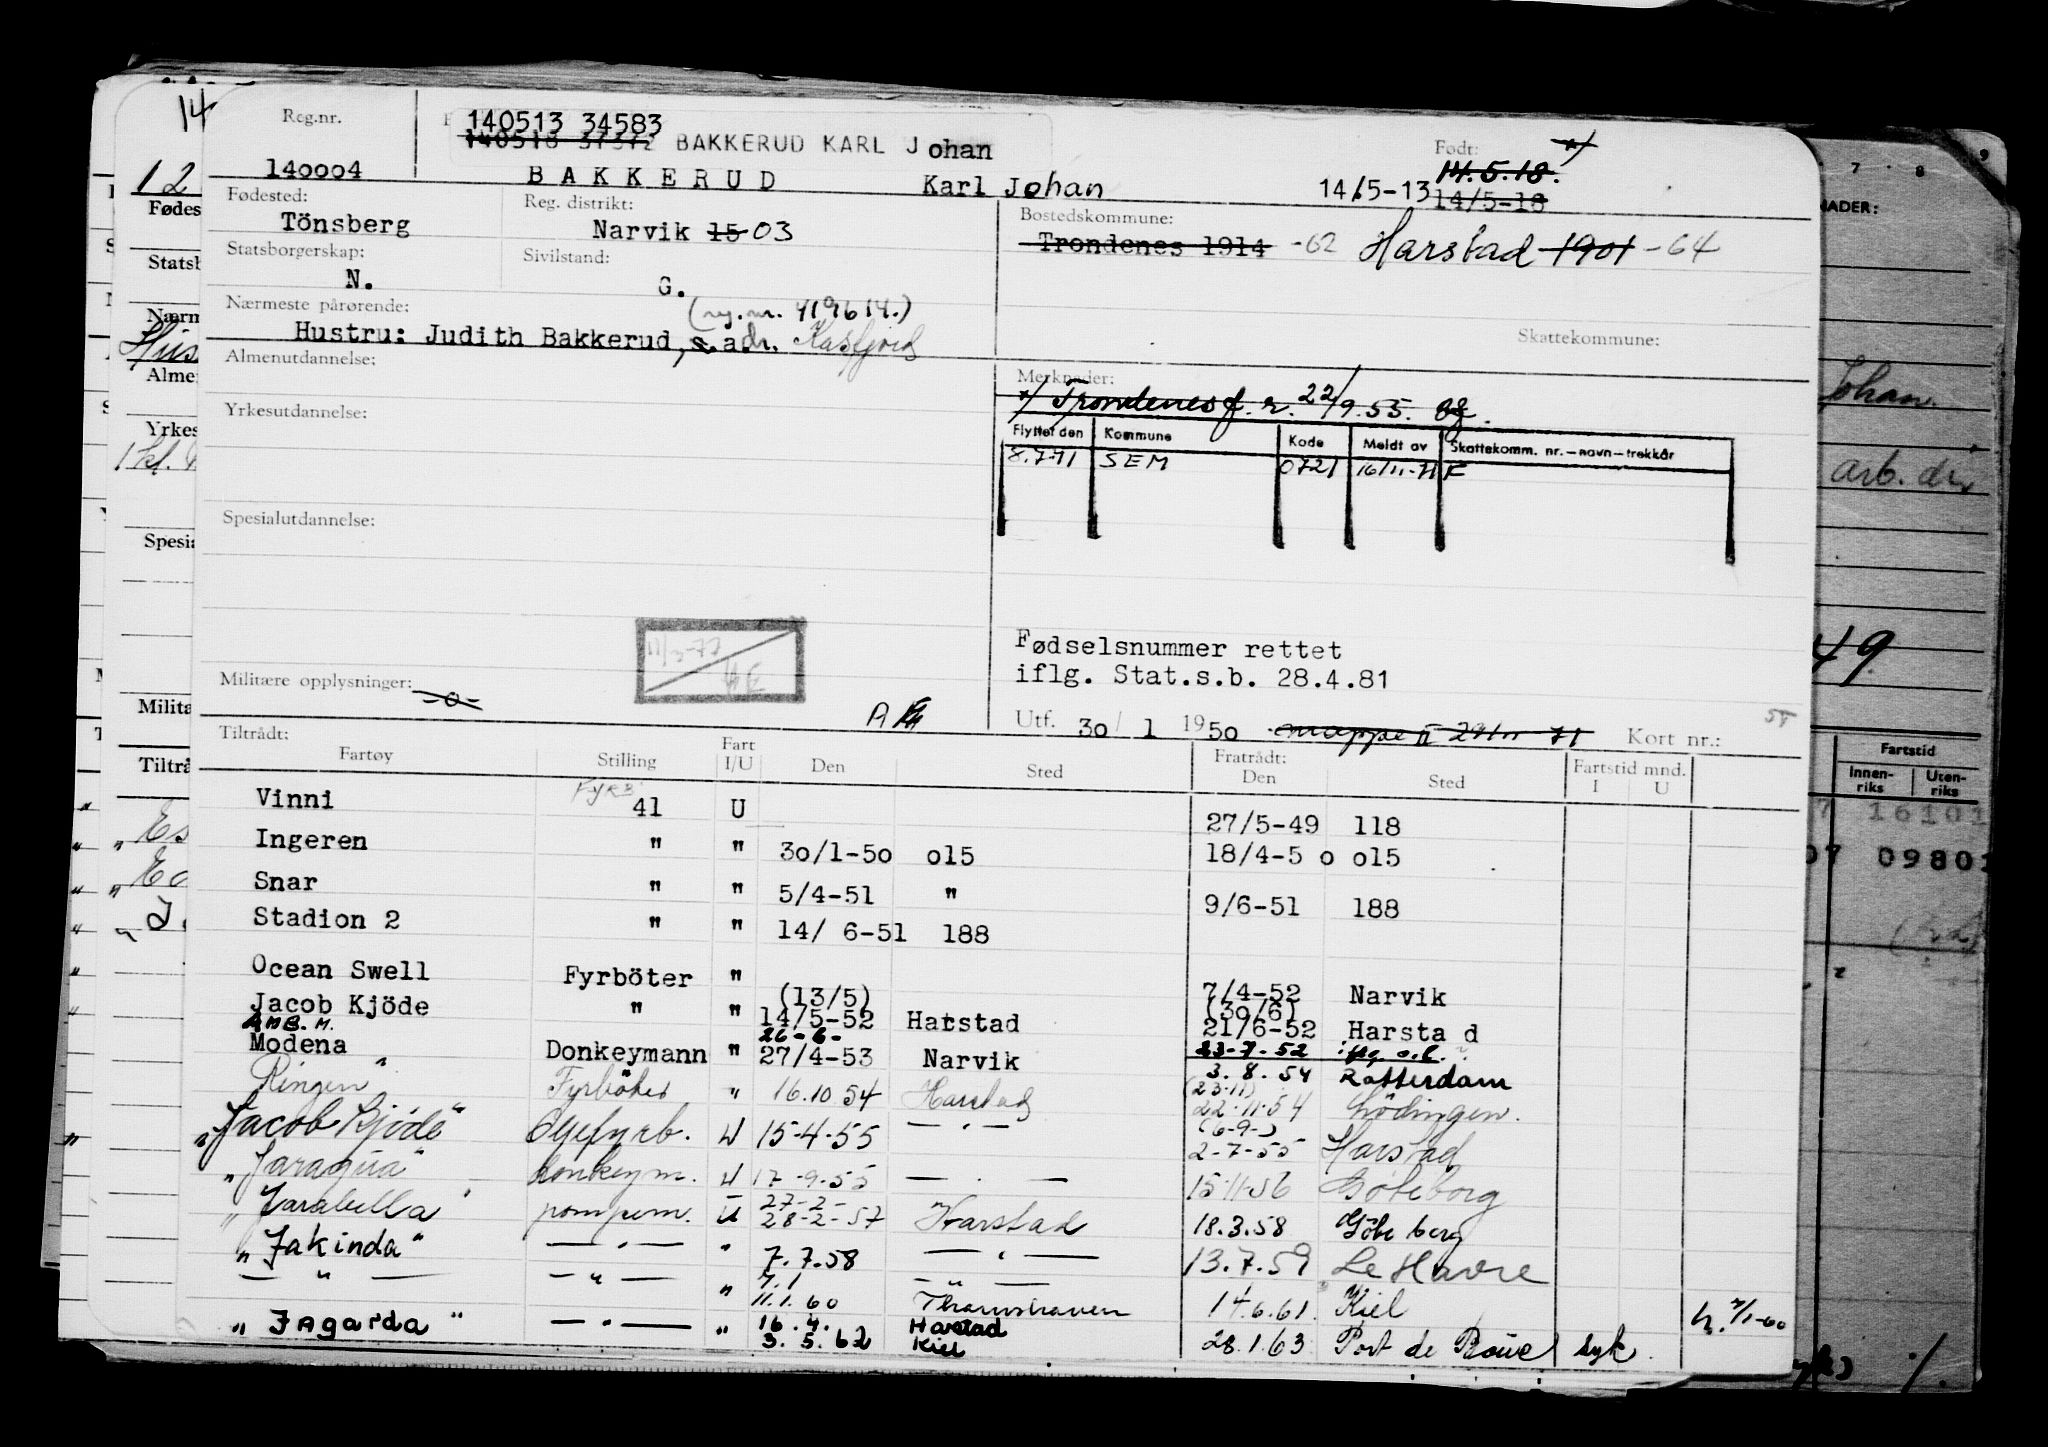 14
Reg.nr.
140513 34583
140518 37372 BAKKERUD KARL Johan
Født:
140004
BAKKERUD
Karl Johan
14/5-13
14.5.18.
14/5-18
12
Fødes
Fødested:
Tönsberg
Reg. distrikt:
Narvik 15 03
Bostedskommune:
Trondenes 1914 -62 Harstad 1901 -64
Statsb
Statsborgerskap:
N.
Sivilstand:
G.
Nærm
Nærmeste pårørende:
(reg.nr. 419614.)
Hustru: Judith Bakkerud, s.adr. Kasfjord
Skattekommune:
Alme
Almenutdannelse:
Merknader:
x/ Trondenes f. r. 22/9.55.
Yrkes
Yrkesutdannelse:
Flyttet den Kommune Kode Meldt av Skattekomm. nr.-navn-trekkår
8.7.71 SEM 0721 16/11-71 F
Spesia
Spesialutdannelse:
Fødselsnummer rettet
iflg. Stat.s.b. 28.4.81
11/3-77
Milita
Militære opplysninger:
-o-
Utf. 30/1 1950 mappe II 29/11 71 Kort nr.:
Tiltrå
Tiltrådt:
Fartøy Stilling Fart I/U Den Sted Fratrådt: Den Sted Fartstid mnd. I U
Fyrb
Vinni 41 U 27/5-49 118
Ingeren " " 30/1-50 o15 18/4-5 o o15
Snar " " 5/4-51 " 9/6-51 188
Stadion 2 " " 14/ 6-51 188
Ocean Swell Fyrböter " 7/4-52 Narvik
(13/5) (30/6)
Jacob Kjöde " " 14/5-52 Harstad 21/6-52 Harsta d
AMB. M. 26-6- 23-7-52
Modena Donkeymann " 27/4-53 Narvik 3.8.54 Rotterdam
(23-11)
Ringen " Fyrböter " 16.10 54 Harstad 22-11-54 Lödingen.
(6-9-)
"Jacob Kjöde" Oljefyrb. U 15-4-55 —"— 2-7-55 Harstad
"Jaraqua" donkeym. U 17-9-55 — . — 15-11-56 Göteborg
27-2-
"Jarabella" pompem. U 28-2-57 Harstad 18.3.58 Göteberg
"Jakinda" —"— " 7.7.58 —"— 13.7.59 Le Havre
7.1
—"— —"— " 11.1.60 —"— Thamshavn 14.6.61 Kiel
16.4. Harstad
"Jagarda" —"— " 3.5.62 Kiel 28.1.63 Port de Bouc syk.
7 8
NADER:
Johan.
arb. dr.
49.
Fartstid
Innen-riks Uten-riks
16101
07 09801